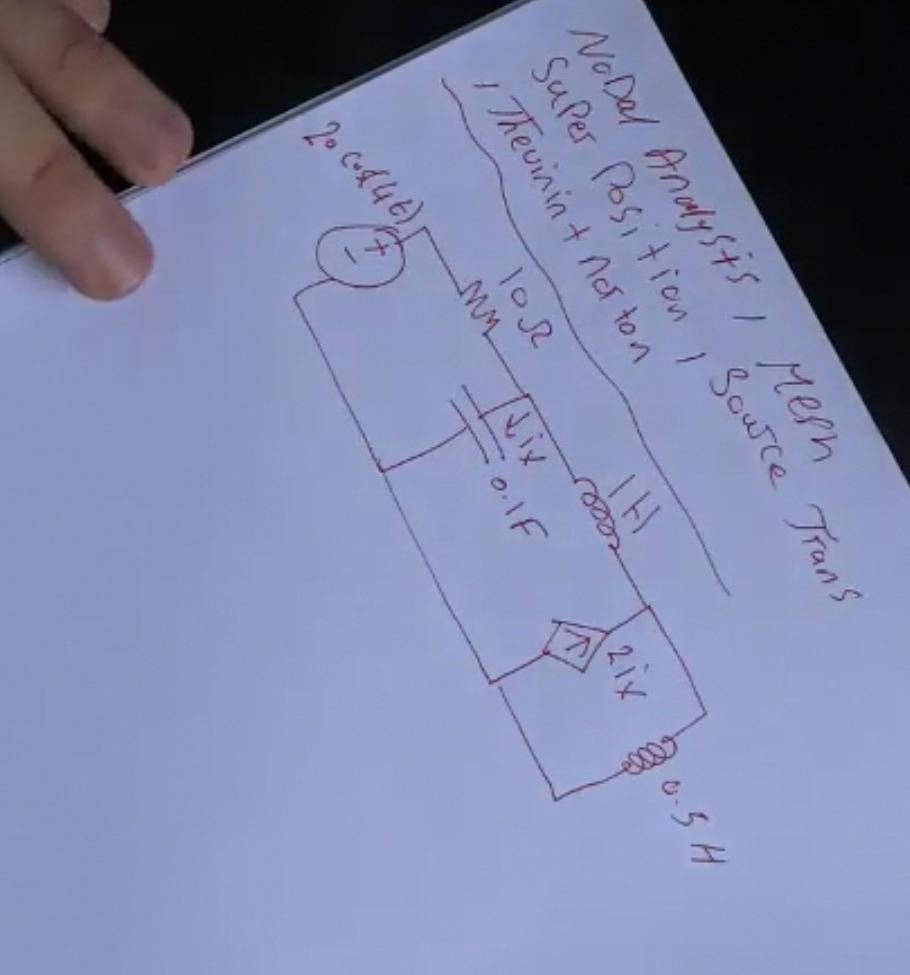 Nodal Analysis / Mesh
Super Position / Source Trans
/ Thevinin + norton
20 cos(4t)
+
-
10Ω
ix
0.1F
1H
2ix
0.5 H